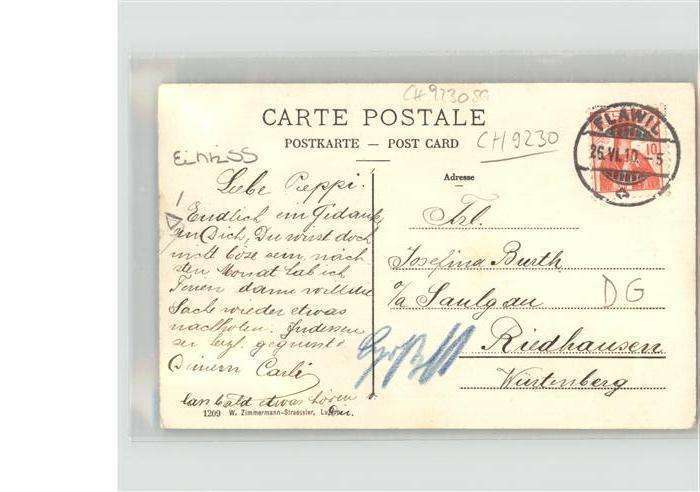 CH 9230 SG
CARTE POSTALE
POSTKARTE — POST CARD
CH 9230
FLAWIL
26.VI.10. - 5
10
Liebe Peppi!
Endlich ein Gedanke
an Dich, Du wirst doch
nicht böse sein, nach
sten Monat hab ich
Ferien dann will die
Sache wieder etwas
nachholen. Indessen
sei hzl. gegrüsst v
Deinem Carli
lass bald etwas hören
1209 W. Zimmermann-Straessler,
Adresse
Frl.
Josefina Burth
o/a Saulgau
DG
Riedhausen
Würtenberg